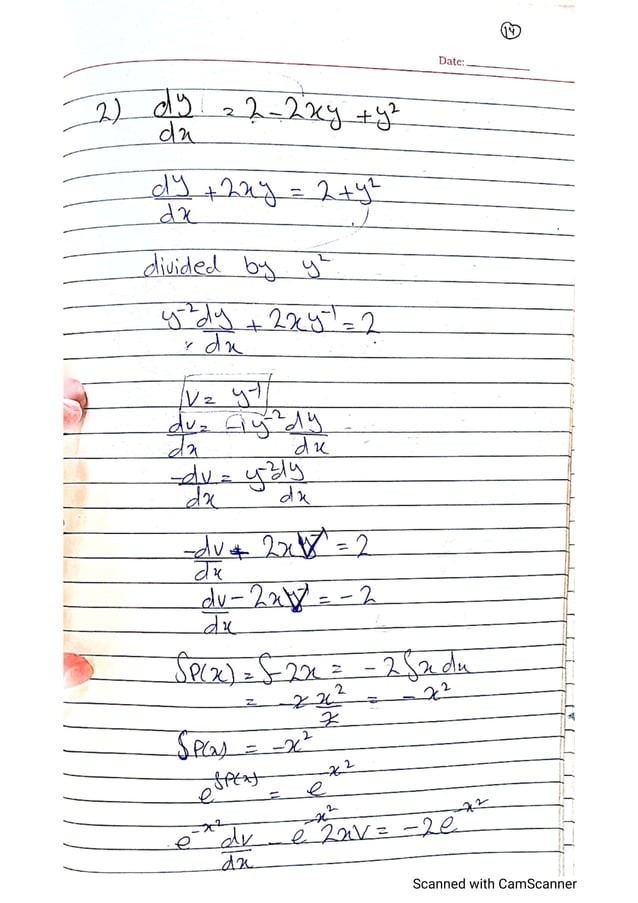 14
Date:
2) dy/dx = 2 - 2xy + y²
dy/dx + 2xy = 2 + y²
divided by y²
y⁻² dy/dx + 2xy⁻¹ = 2
v = y⁻¹
dv/dx = -1y⁻² dy/dx
-dv/dx = y⁻² dy/dx
-dv/dx + 2xV = 2
dv/dx - 2xV = -2
∫P(x) = ∫-2x = -2∫x dx
= -2 x²/2 = -x²
∫P(x) = -x²
e^∫P(x) = e^-x²
e^-x² dv/dx - e^-x² 2xV = -2e^-x²
Scanned with CamScanner